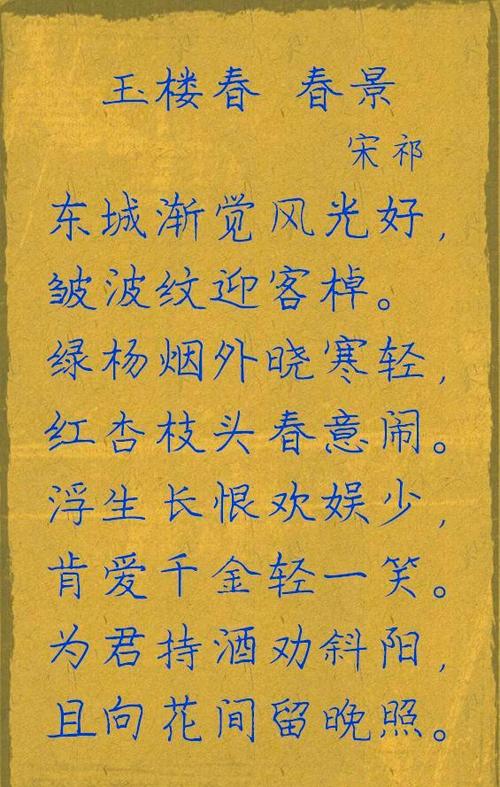 玉楼春 春景
宋祁
东城渐觉风光好，
皱波纹迎客棹。
绿杨烟外晓寒轻，
红杏枝头春意闹。
浮生长恨欢娱少，
肯爱千金轻一笑。
为君持酒劝斜阳，
且向花间留晚照。